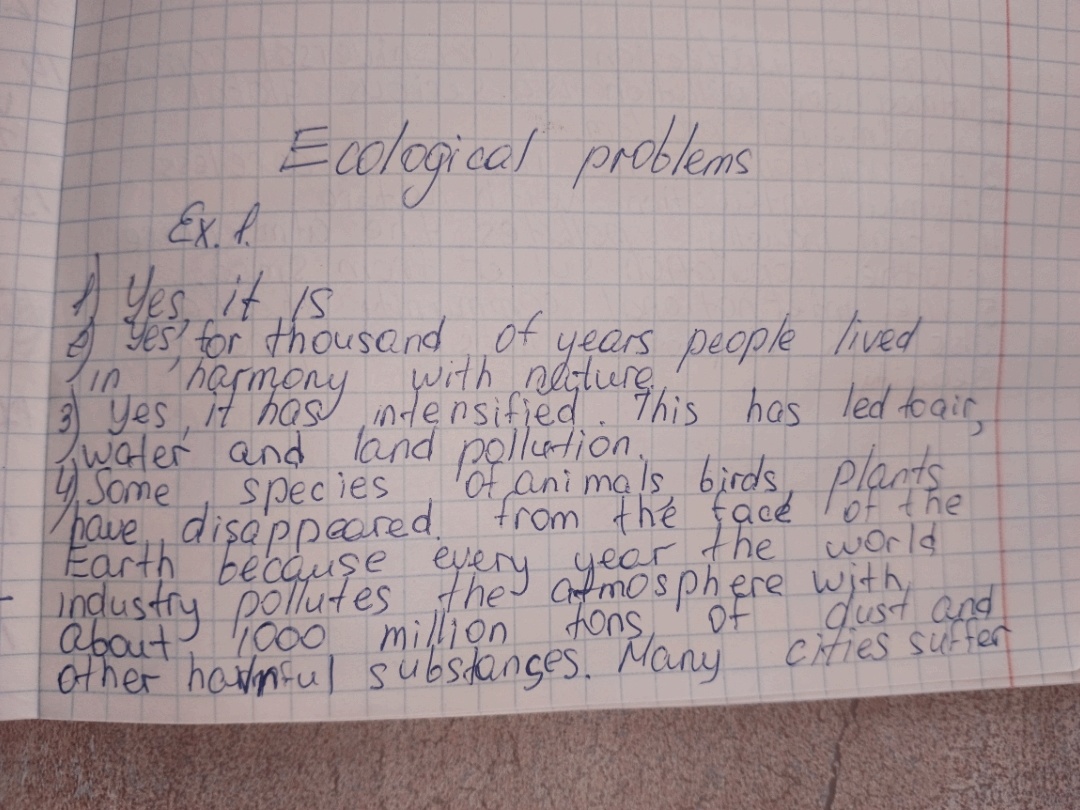 Ecological problems
Ex. 1.
1) Yes, it is
2) Yes, for thousand of years people lived
in harmony with nature.
3) Yes, it has intensified. This has led to air,
water and land pollution.
4) Some species of animals, birds, plants
have disappeared from the face of the
Earth because every year the world
industry pollutes the atmosphere with
about 1000 million tons of dust and
other harmful substanges. Many cities suffer